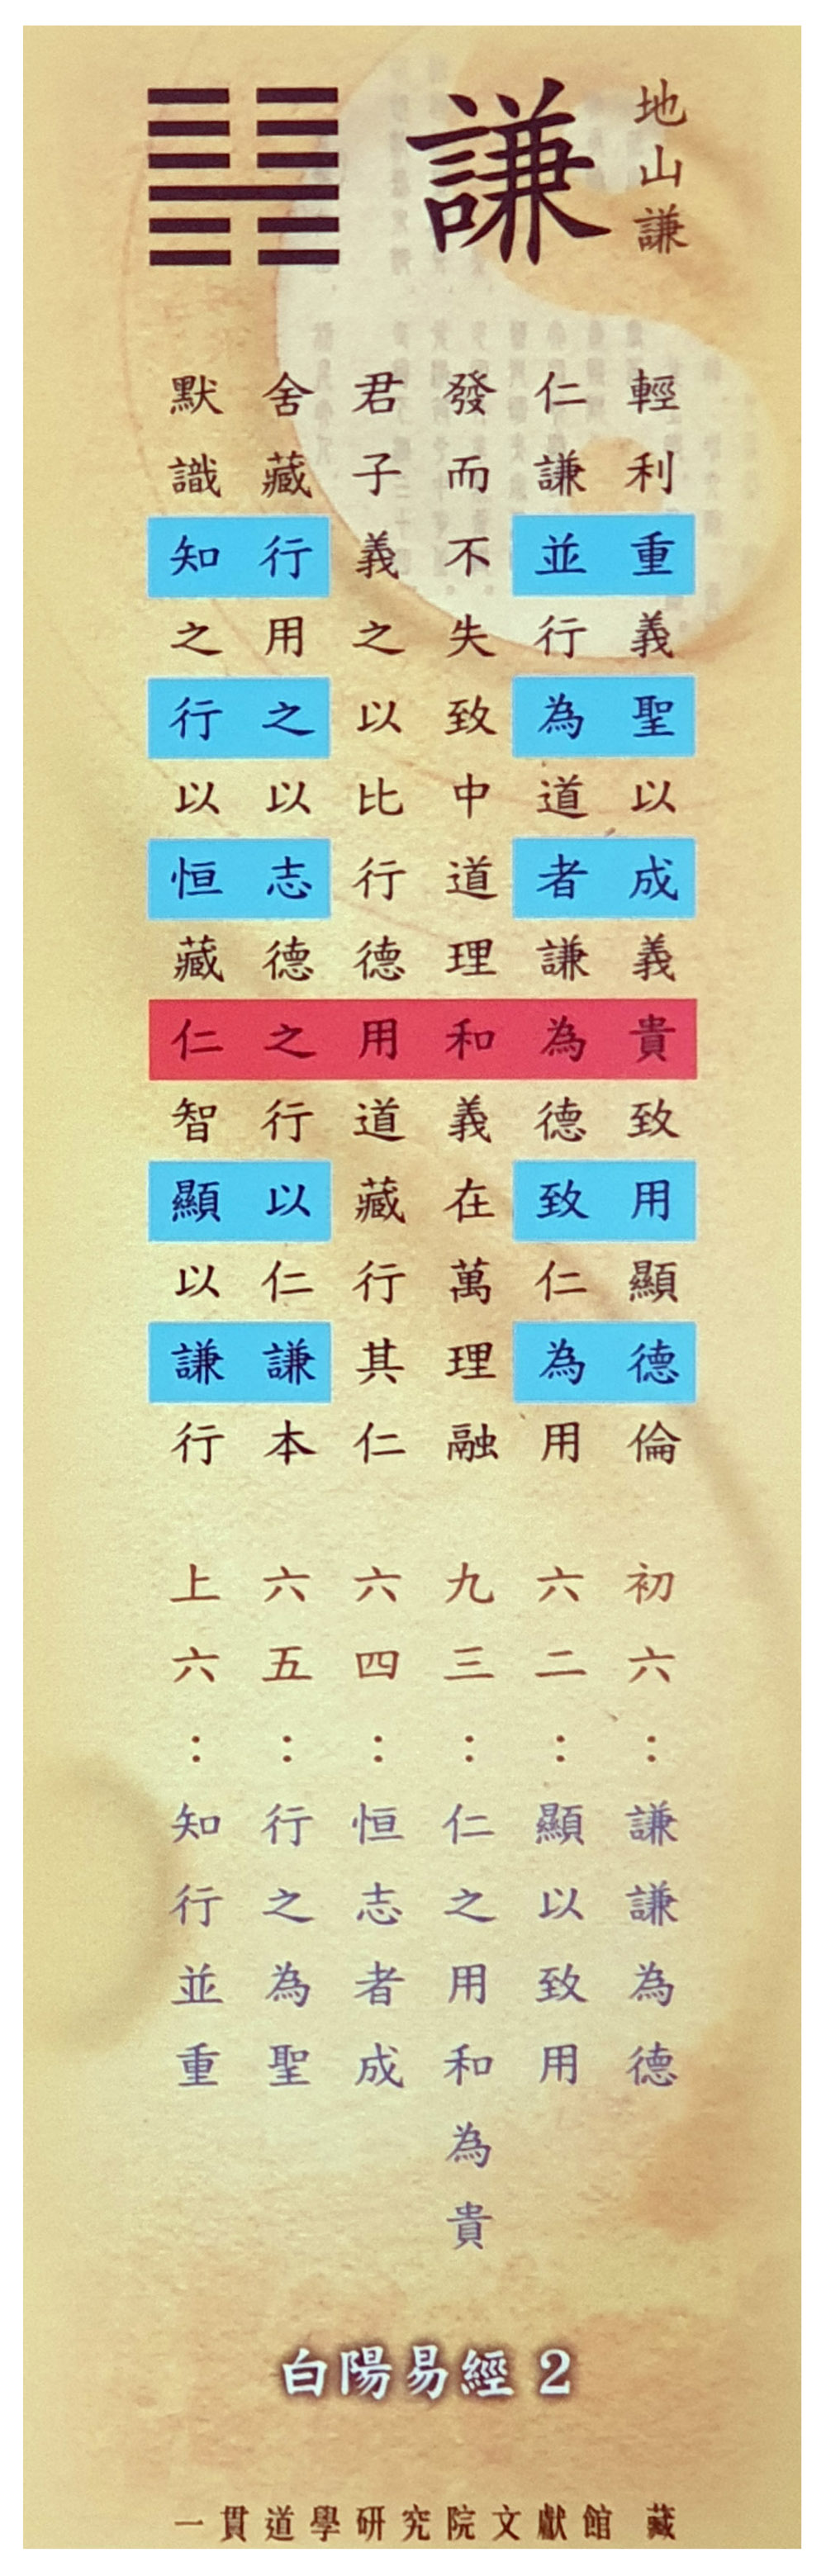 地山謙
謙
輕利重義聖以成義貴致用顯德倫
仁謙並行為道者謙為德致仁為用
發而不失致中道理和義在萬理融
君子義之以比行德用道藏行其仁
舍藏行用之以志德之行以仁謙本
默識知之行以恒藏仁智顯以謙行
初六：謙謙為德
六二：顯以致用
九三：仁之用和為貴
六四：恒志者成
六五：行之為聖
上六：知行並重
白陽易經 2
一貫道學研究院文獻館 藏